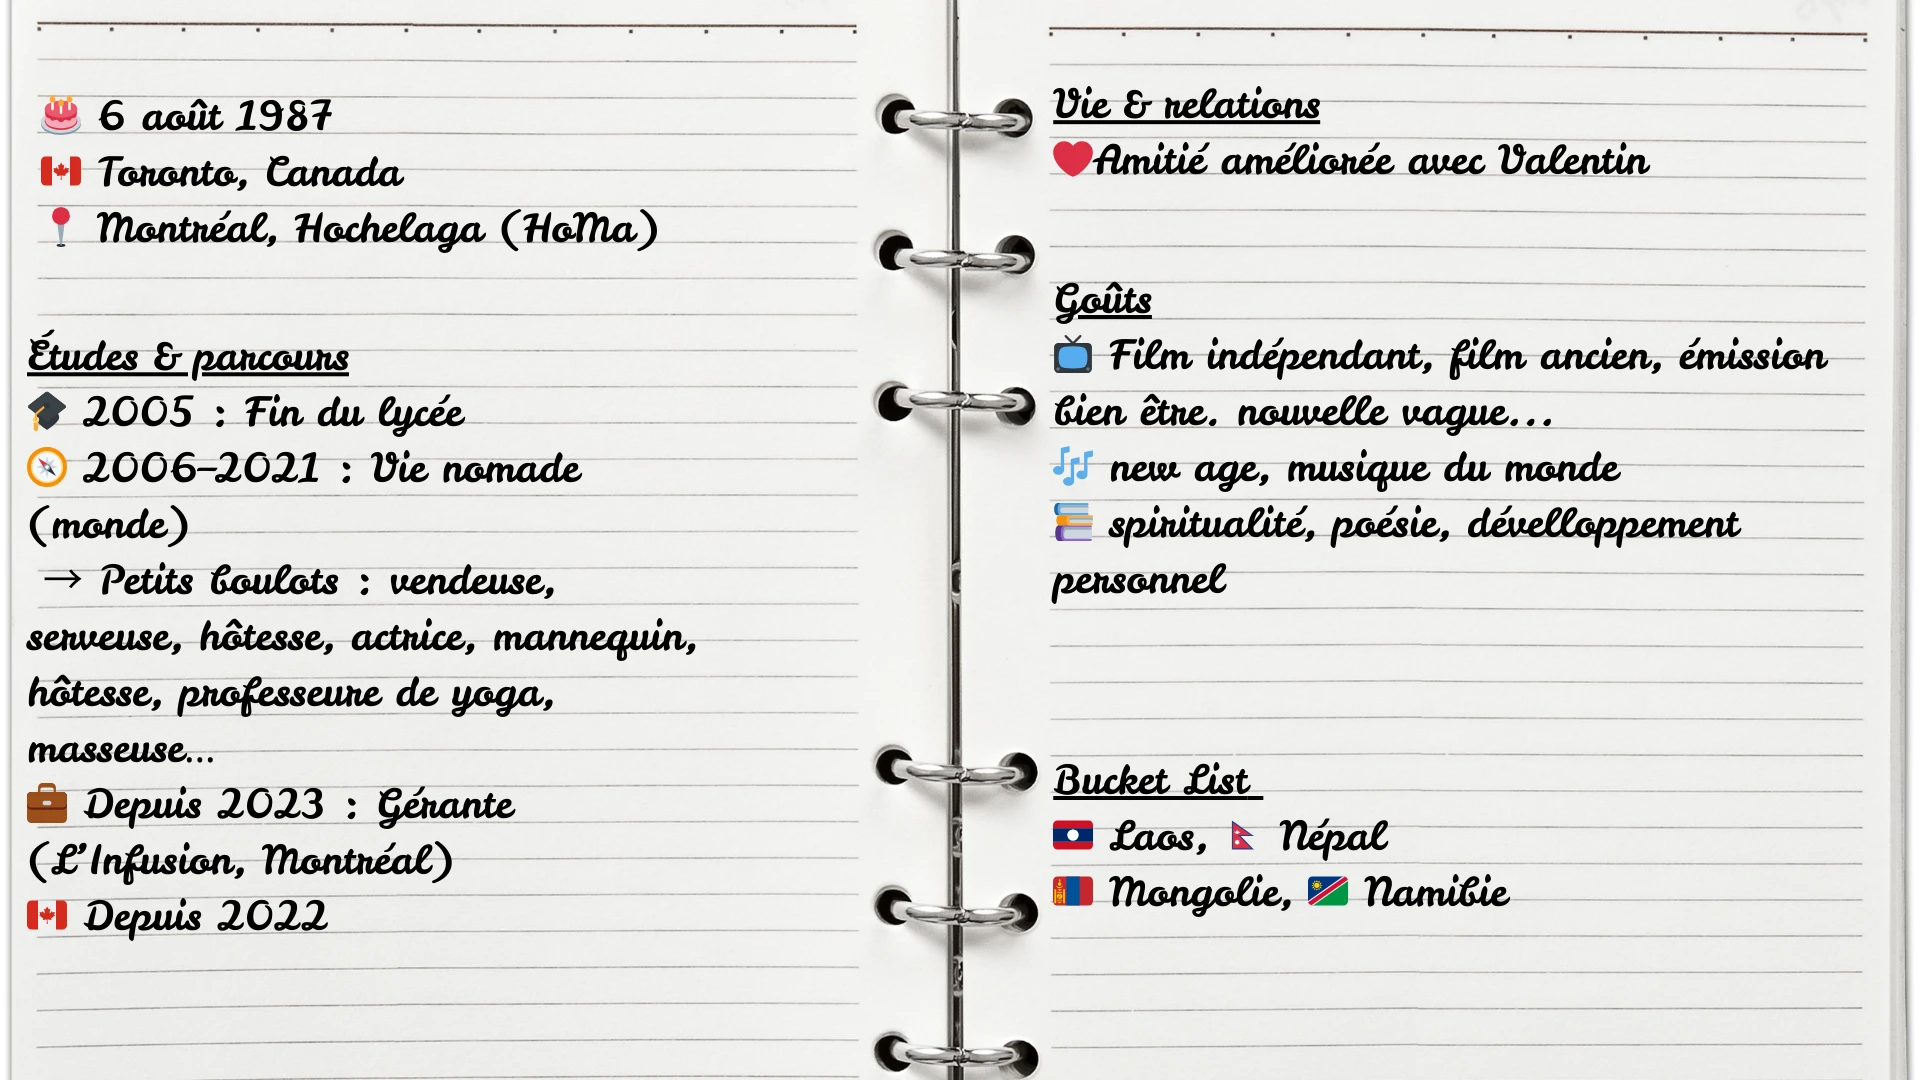 6 août 1987
Toronto, Canada
Montréal, Hochelaga (HoMa)
Études & parcours
2005 : Fin du lycée
2006–2021 : Vie nomade
(monde)
→ Petits boulots : vendeuse,
serveuse, hôtesse, actrice, mannequin,
hôtesse, professeure de yoga,
masseuse...
Depuis 2023 : Gérante
(L'Infusion, Montréal)
Depuis 2022
Vie & relations
Amitié améliorée avec Valentin
Goûts
Film indépendant, film ancien, émission
bien être. nouvelle vague...
new age, musique du monde
spiritualité, poésie, dévelloppement
personnel
Bucket List
Laos, Népal
Mongolie, Namibie